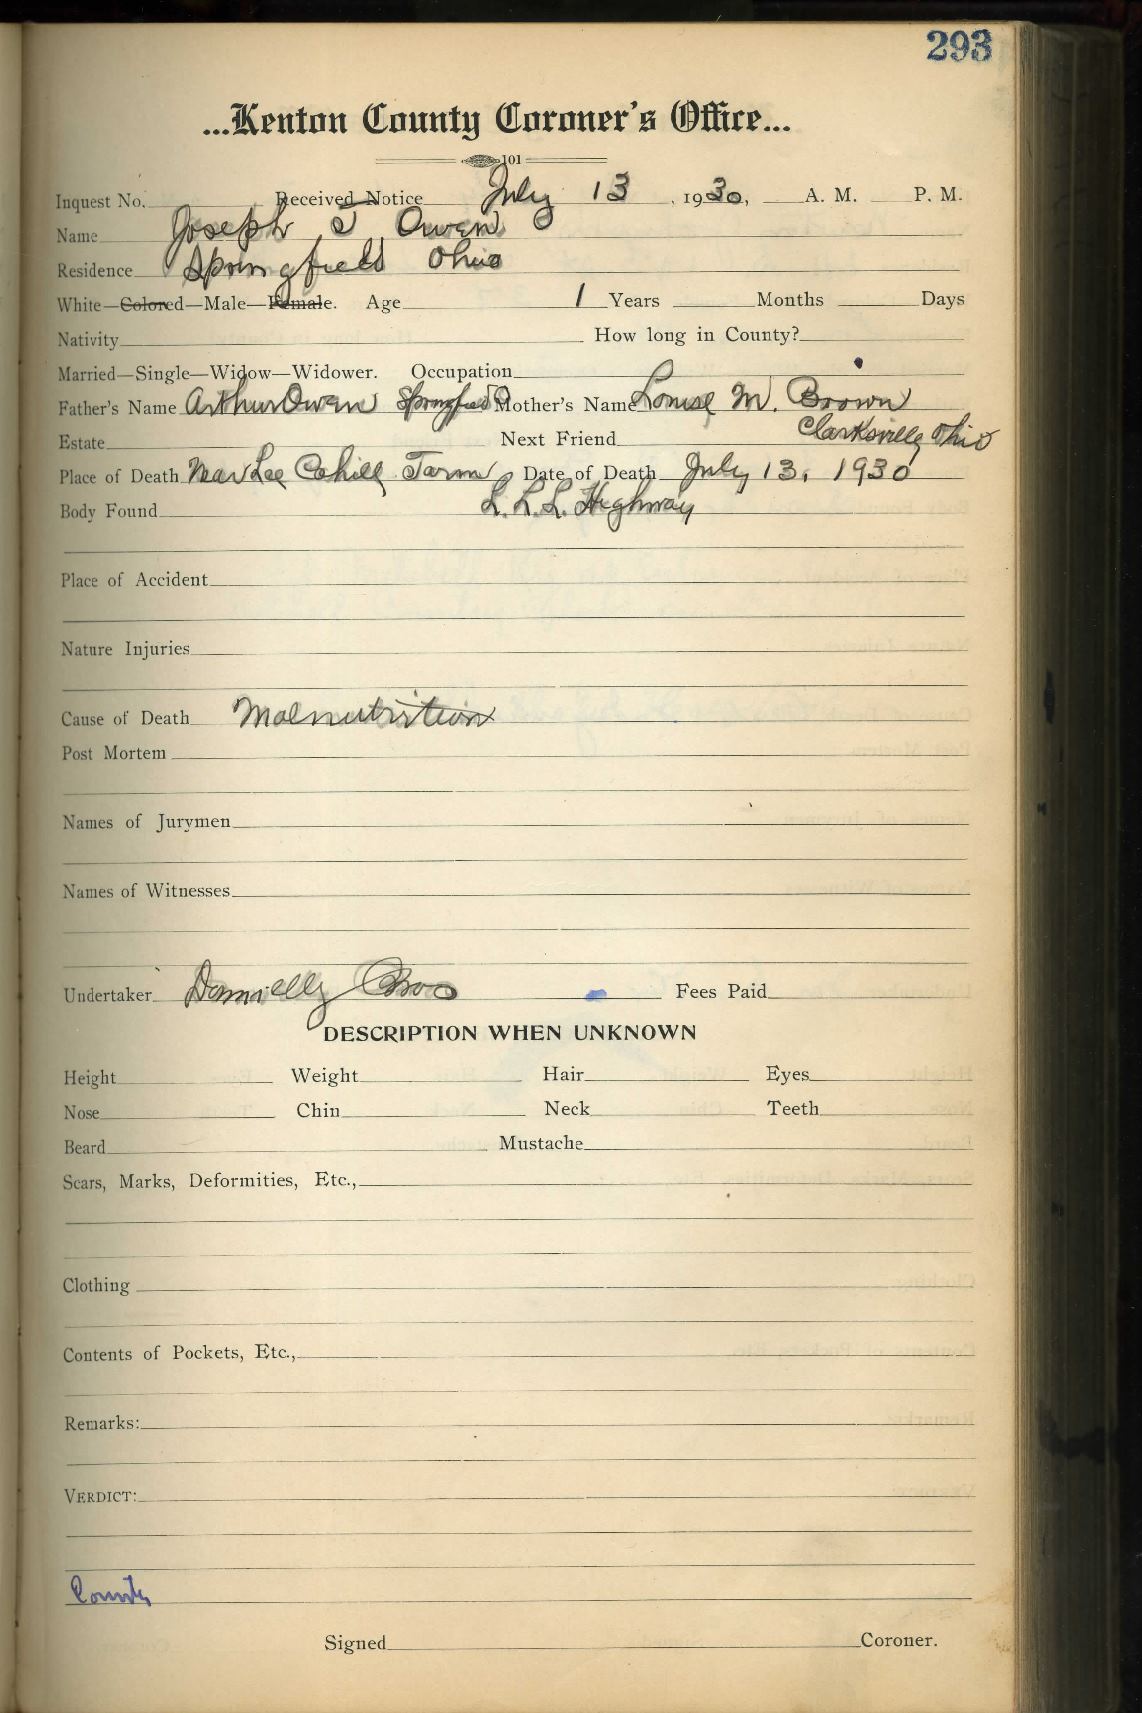 293
...Kenton County Coroner's Office...
101
Inquest No. Received Notice July 13, 1930, A. M. P. M.
Name Joseph T Owen
Residence Springfield Ohio
White—Colored—Male—Female. Age 1 Years Months Days
Nativity How long in County?
Married—Single—Widow—Widower. Occupation
Father's Name Arthur Owen Springfield O Mother's Name Louise M. Brown
Clarksville Ohio
Estate Next Friend
Place of Death Near Lee Cahill Farm Date of Death July 13, 1930
Body Found L. L. L. Highway
Place of Accident
Nature Injuries
Cause of Death Malnutrition
Post Mortem
Names of Jurymen
Names of Witnesses
Undertaker Bros Fees Paid
DESCRIPTION WHEN UNKNOWN
Height Weight Hair Eyes
Nose Chin Neck Teeth
Beard Mustache
Scars, Marks, Deformities, Etc.,
Clothing
Contents of Pockets, Etc.,
Remarks:
VERDICT:
County
Signed Coroner.